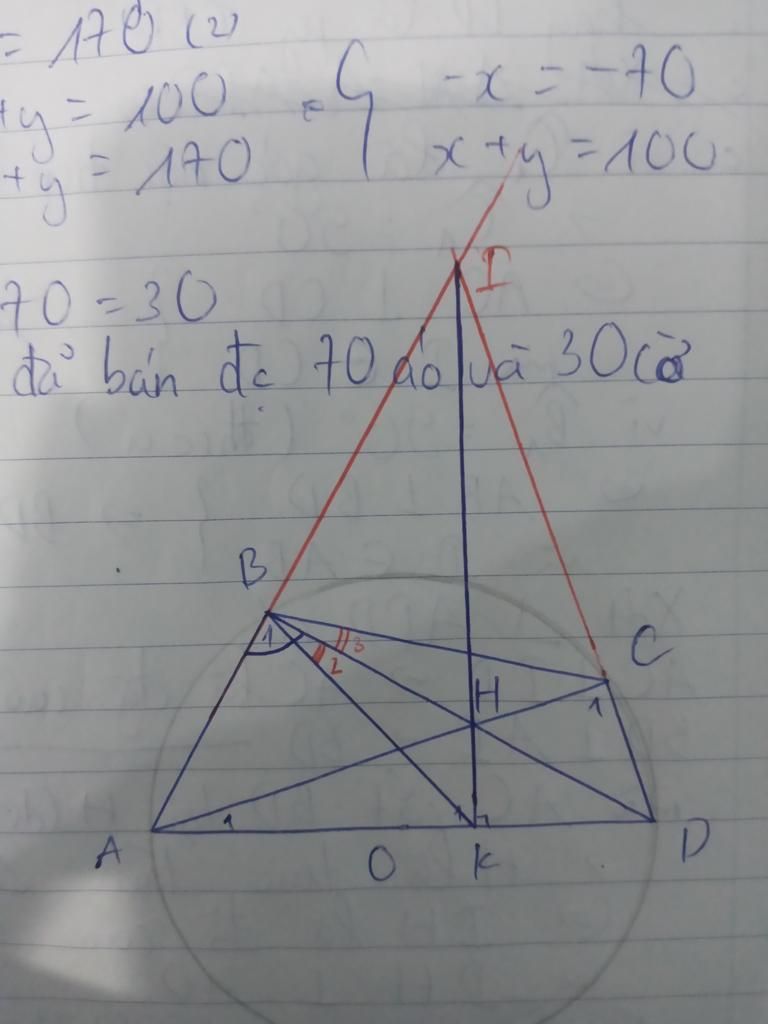 = 170 (2)
+y = 100
-x = -70
+y = 170
x+y = 100
70 = 30
đã bán đc 70 áo và 30
I
B
1
3
2
C
H
1
A
1
1
O
K
D